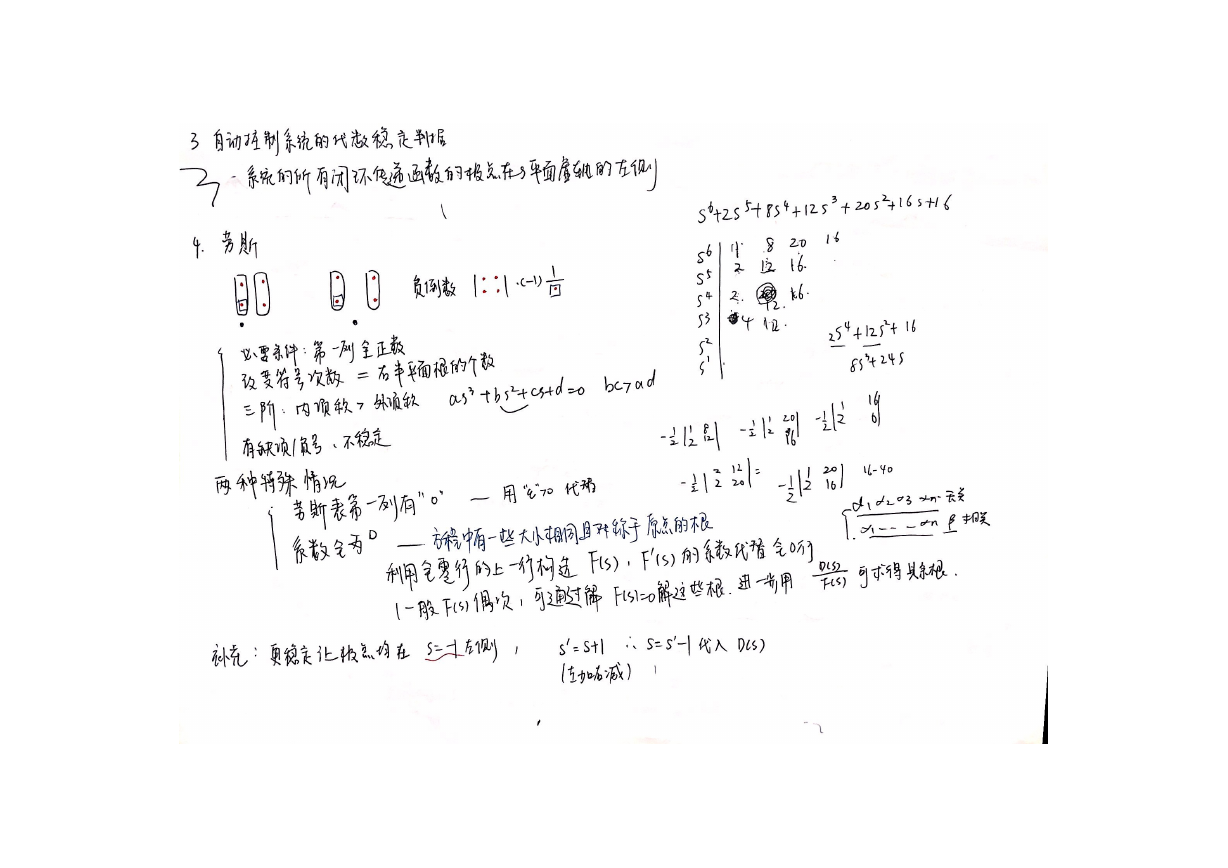 3 自动控制系统的代数稳定判据
系统的所有闭环传递函数的极点在s平面虚轴的左侧
4. 劳斯
负倒数 ·(-1)
必要条件:第一列全正数
改变符号次数 = 右半平面根的个数
三阶:内项积 > 外项积 as³+bs²+cs+d=0 bc>ad
有缺项/负号、不稳定
两种特殊情况
劳斯表第一列有"0" — 用"ε">0 代替
系数全为0 — 方程中有一些大小相同且对称于原点的根
利用全零行的上一行构造 F(s),F'(s)的系数代替全0行
(一般F(s)偶次,可通过解 F(s)=0解这些根.进一步用 D(s)/F(s) 可求得其余根.
补充:更稳定让极点均在 s=-1左侧, s'=s+1 ∴ s=s'-1 代入 D(s)
(左加右减)
s⁶+2s⁵+8s⁴+12s³+20s²+16s+16
s⁶ 1 8 20 16
s⁵ 2 12 16
s⁴ 2 12 16
s³ 4 12
s²
s¹
2s⁴+12s²+16
8s³+24s
-1/2 |1 8 2 12| -1/2 |1 20 2 16| -1/2 |1 16 2 0|
-1/2 |2 12 2 20|= -1/2 |1 20 2 16| 16-40
α1 α2 α3 αn 无关
α1 --- αn β 相关